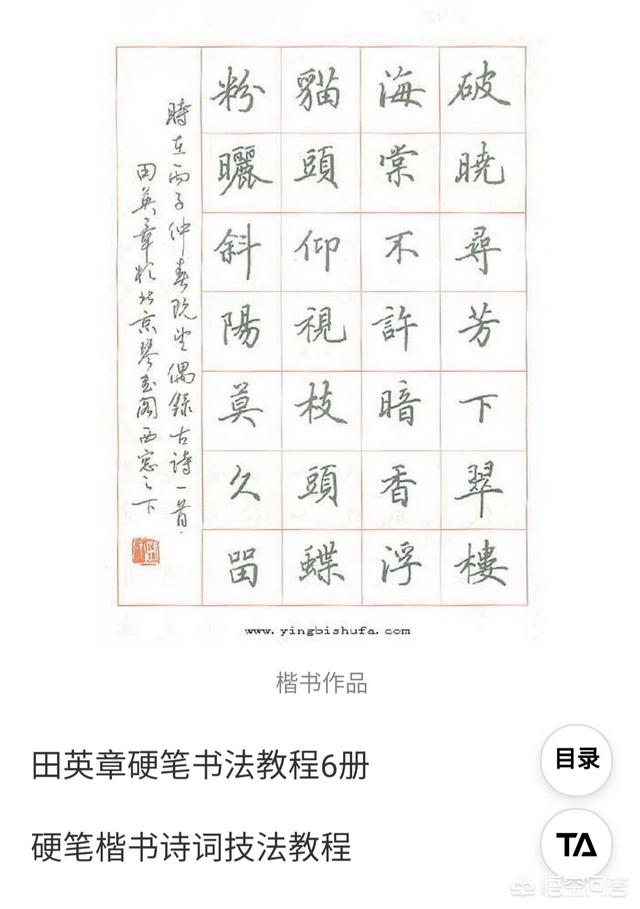 破曉尋芳下翠樓
海棠不許暗香浮
貓頭仰視枝頭蝶
粉曬斜陽莫久留
時在丙子仲春既望偶錄古詩一首
田英章於北京琴書閣西窗之下
www.yingbishufa.com
楷书作品
田英章硬笔书法教程6册
目录
硬笔楷书诗词技法教程
TA
悟空问答